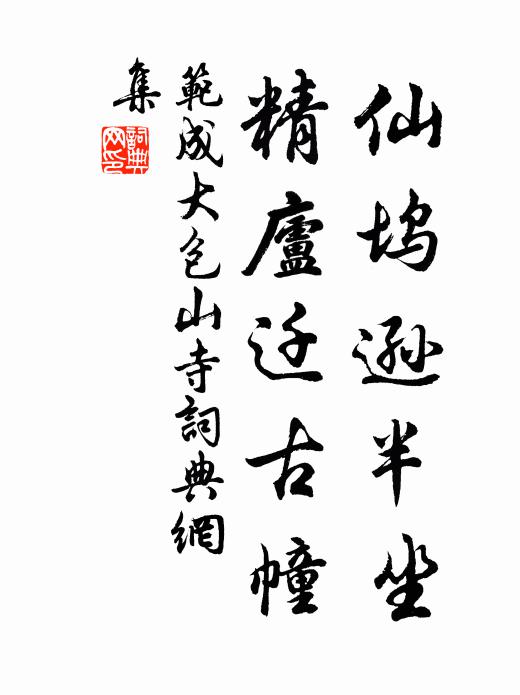 仙坞遜半坐
精廬迁古幢
範成大包山寺詞典網
集
詞典網印